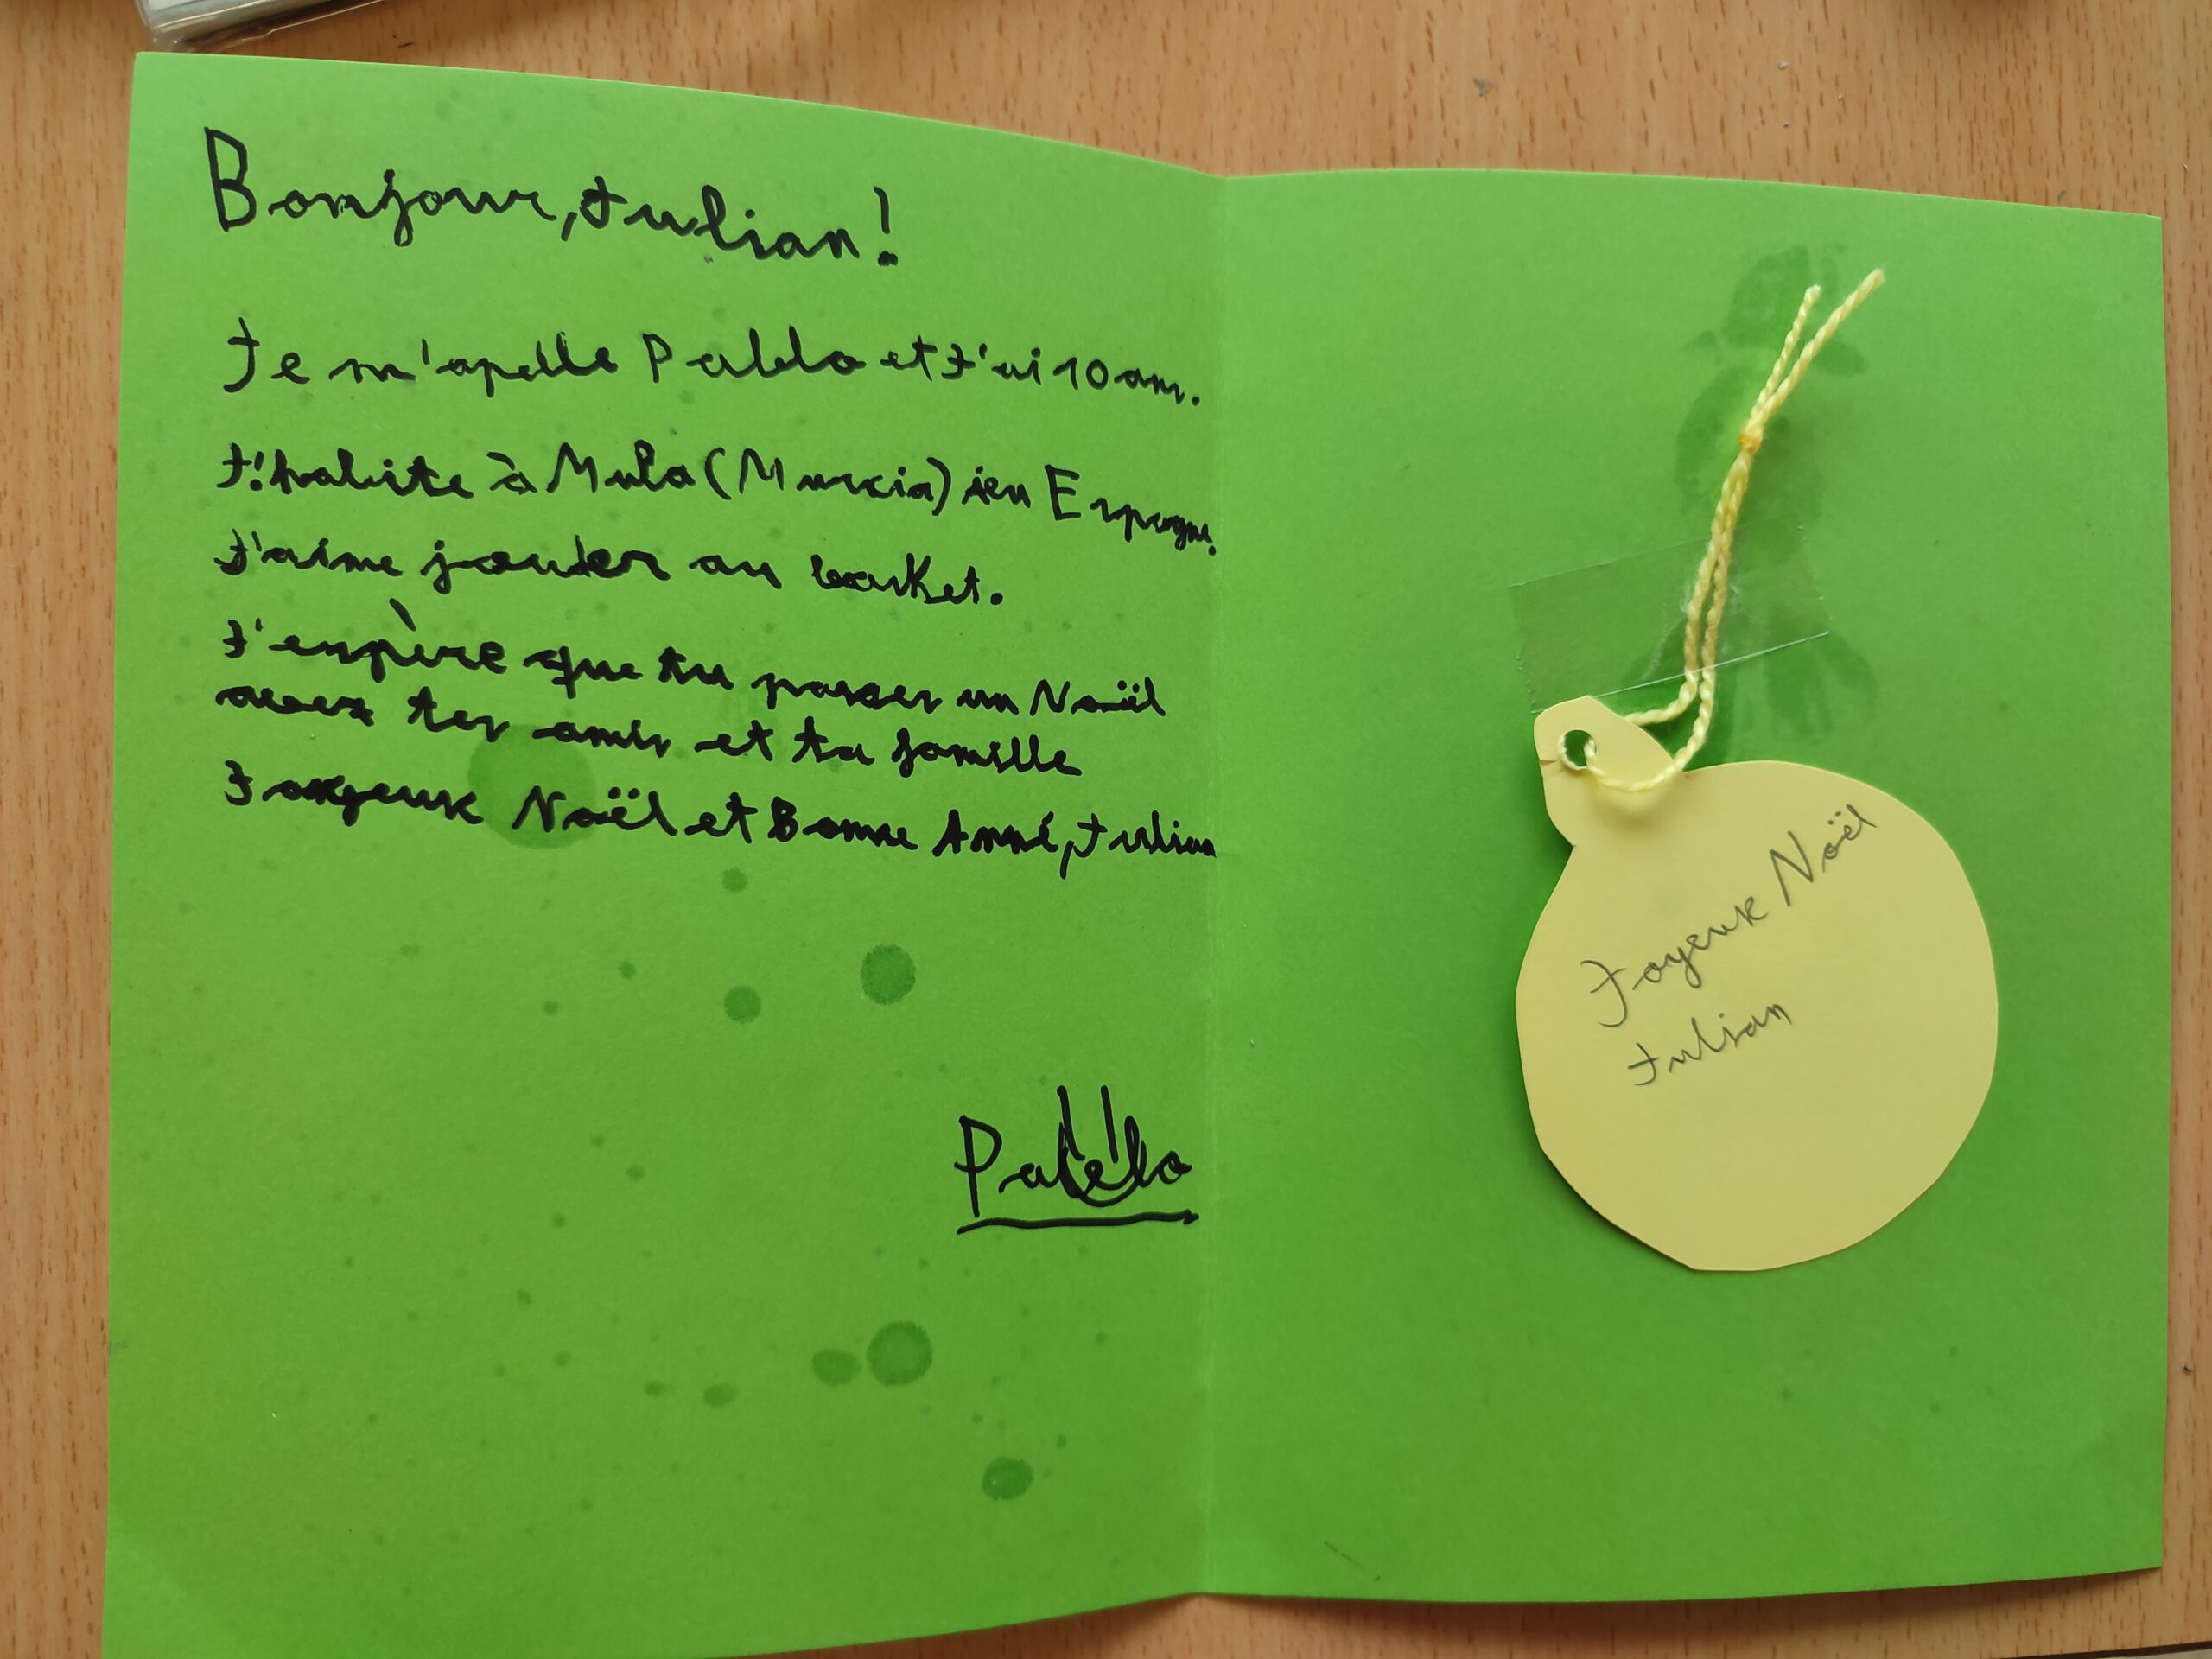 Bonjour, Julian!
Je m'apelle Pablo et J'ai 10 ans.
J'habite à Mula (Murcia) en Espagne.
J'aime jouer au basket.
J'espère que tu passes un Noël
avec tes amis et ta famille
Joyeux Noël et Bonne Anné, Julian
Pablo
Joyeux Noël
Julian